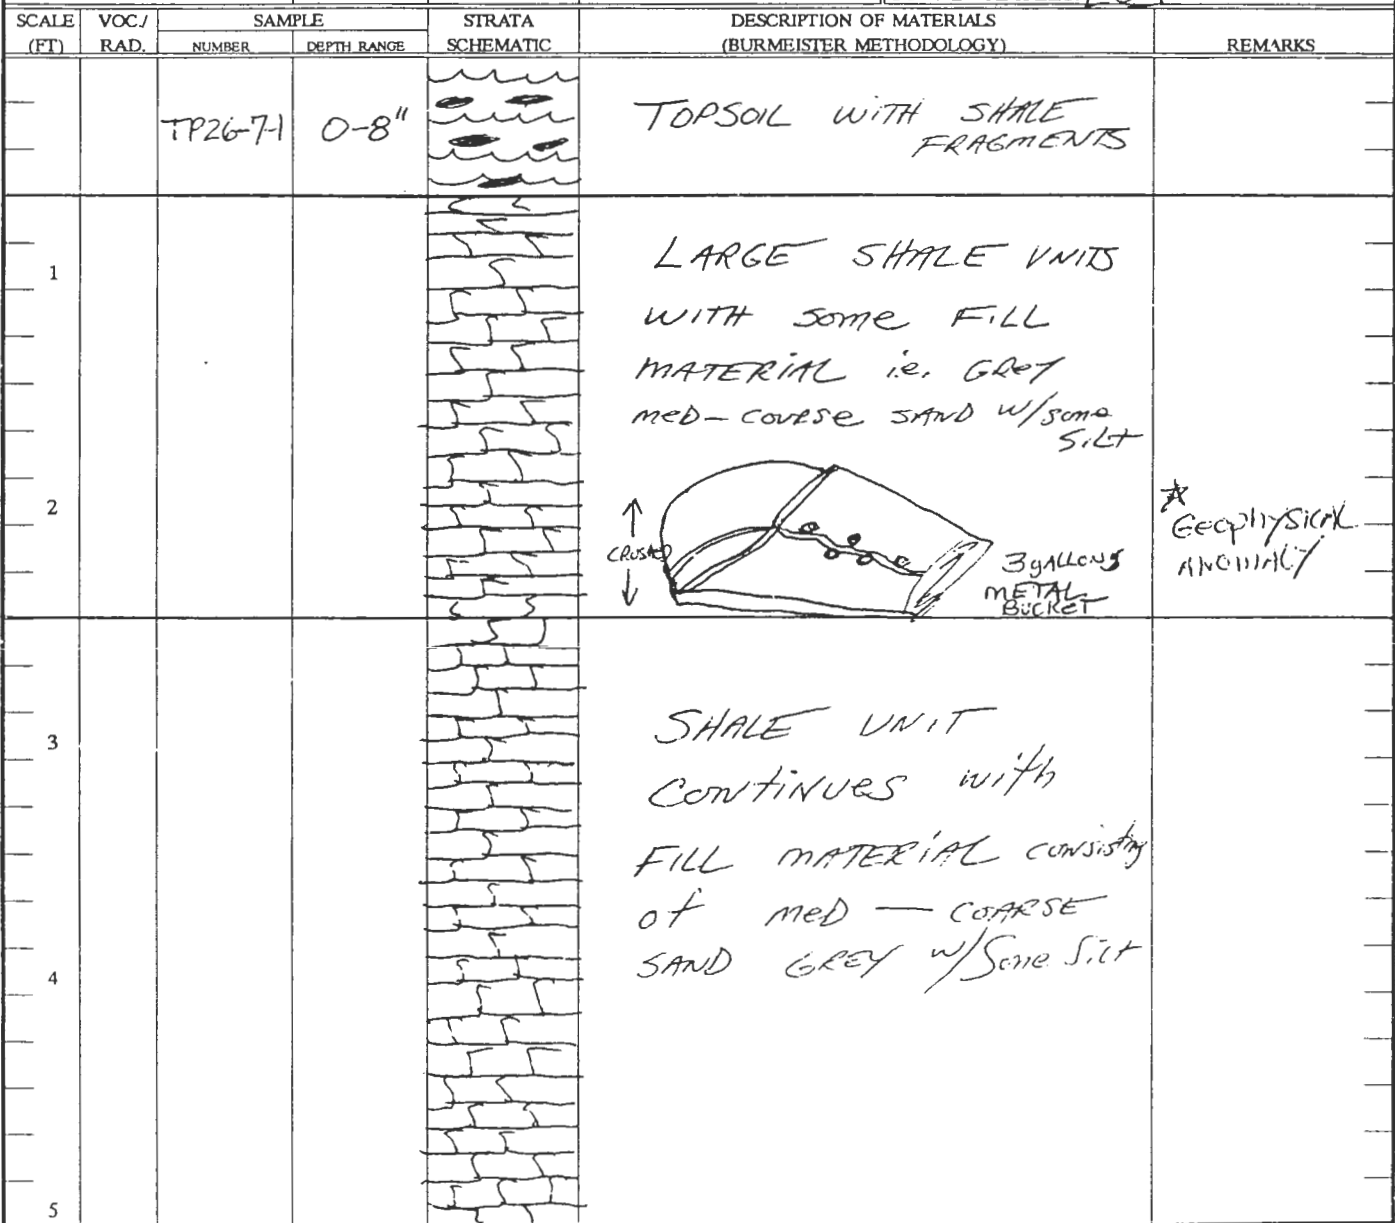 SCALE (FT)
VOC./ RAD.
SAMPLE
NUMBER
DEPTH RANGE
STRATA SCHEMATIC
DESCRIPTION OF MATERIALS
(BURMEISTER METHODOLOGY)
REMARKS
TP26-7-1
0-8"
TOPSOIL WITH SHALE
FRAGMENTS
1
LARGE SHALE UNITS
WITH some FILL
MATERIAL i.e. GREY
MED-COURSE SAND W/some
SILT
2
CRUSHED
3 gALLONS
METAL
BUCKET
* GEOPHYSICAL
ANOMALY
3
SHALE UNIT
CONTINUES with
FILL MATERIAL consisting
of MED — COARSE
SAND GREY w/Some Silt
4
5